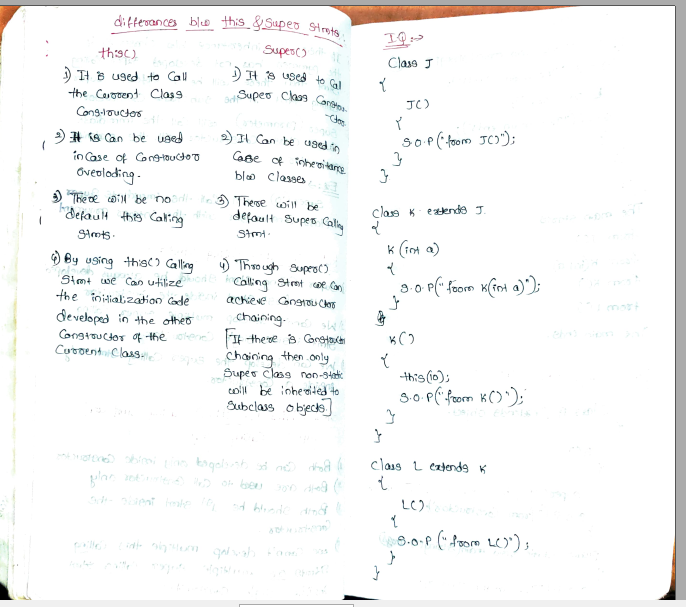 differances b/w this & Super Stmts.
this()
1) It is used to Call
the Current Class
Constructor
2) It is Can be used
in Case of Constructor
Overloding.
3) There will be no
default this Calling
Stmts.
4) By using this() Calling
Stmt we Can utilize
the initialization Code
developed in the other
Constructor of the
Current Class.
Super()
1) It is used to Cal
Super Class Constru
-ctor
2) It Can be used in
Case of inheritance
b/w Classes.
3) There will be
default Super Calling
Stmt.
4) Through Super()
Calling Stmt we Can
achieve Constructor
chaining.
[If there is Constructor
Chaining then only
Super Class non-static
will be inherited to
Subclass objects]
I.Q:→
Class J
{
J()
{
S.O.P("from J()");
}
}
Class K extends J
{
K(int a)
{
S.O.P("from K(int a)");
}
K()
{
this(10);
S.O.P("from K()");
}
}
Class L extends K
{
L()
{
S.O.P("from L()");
}
}